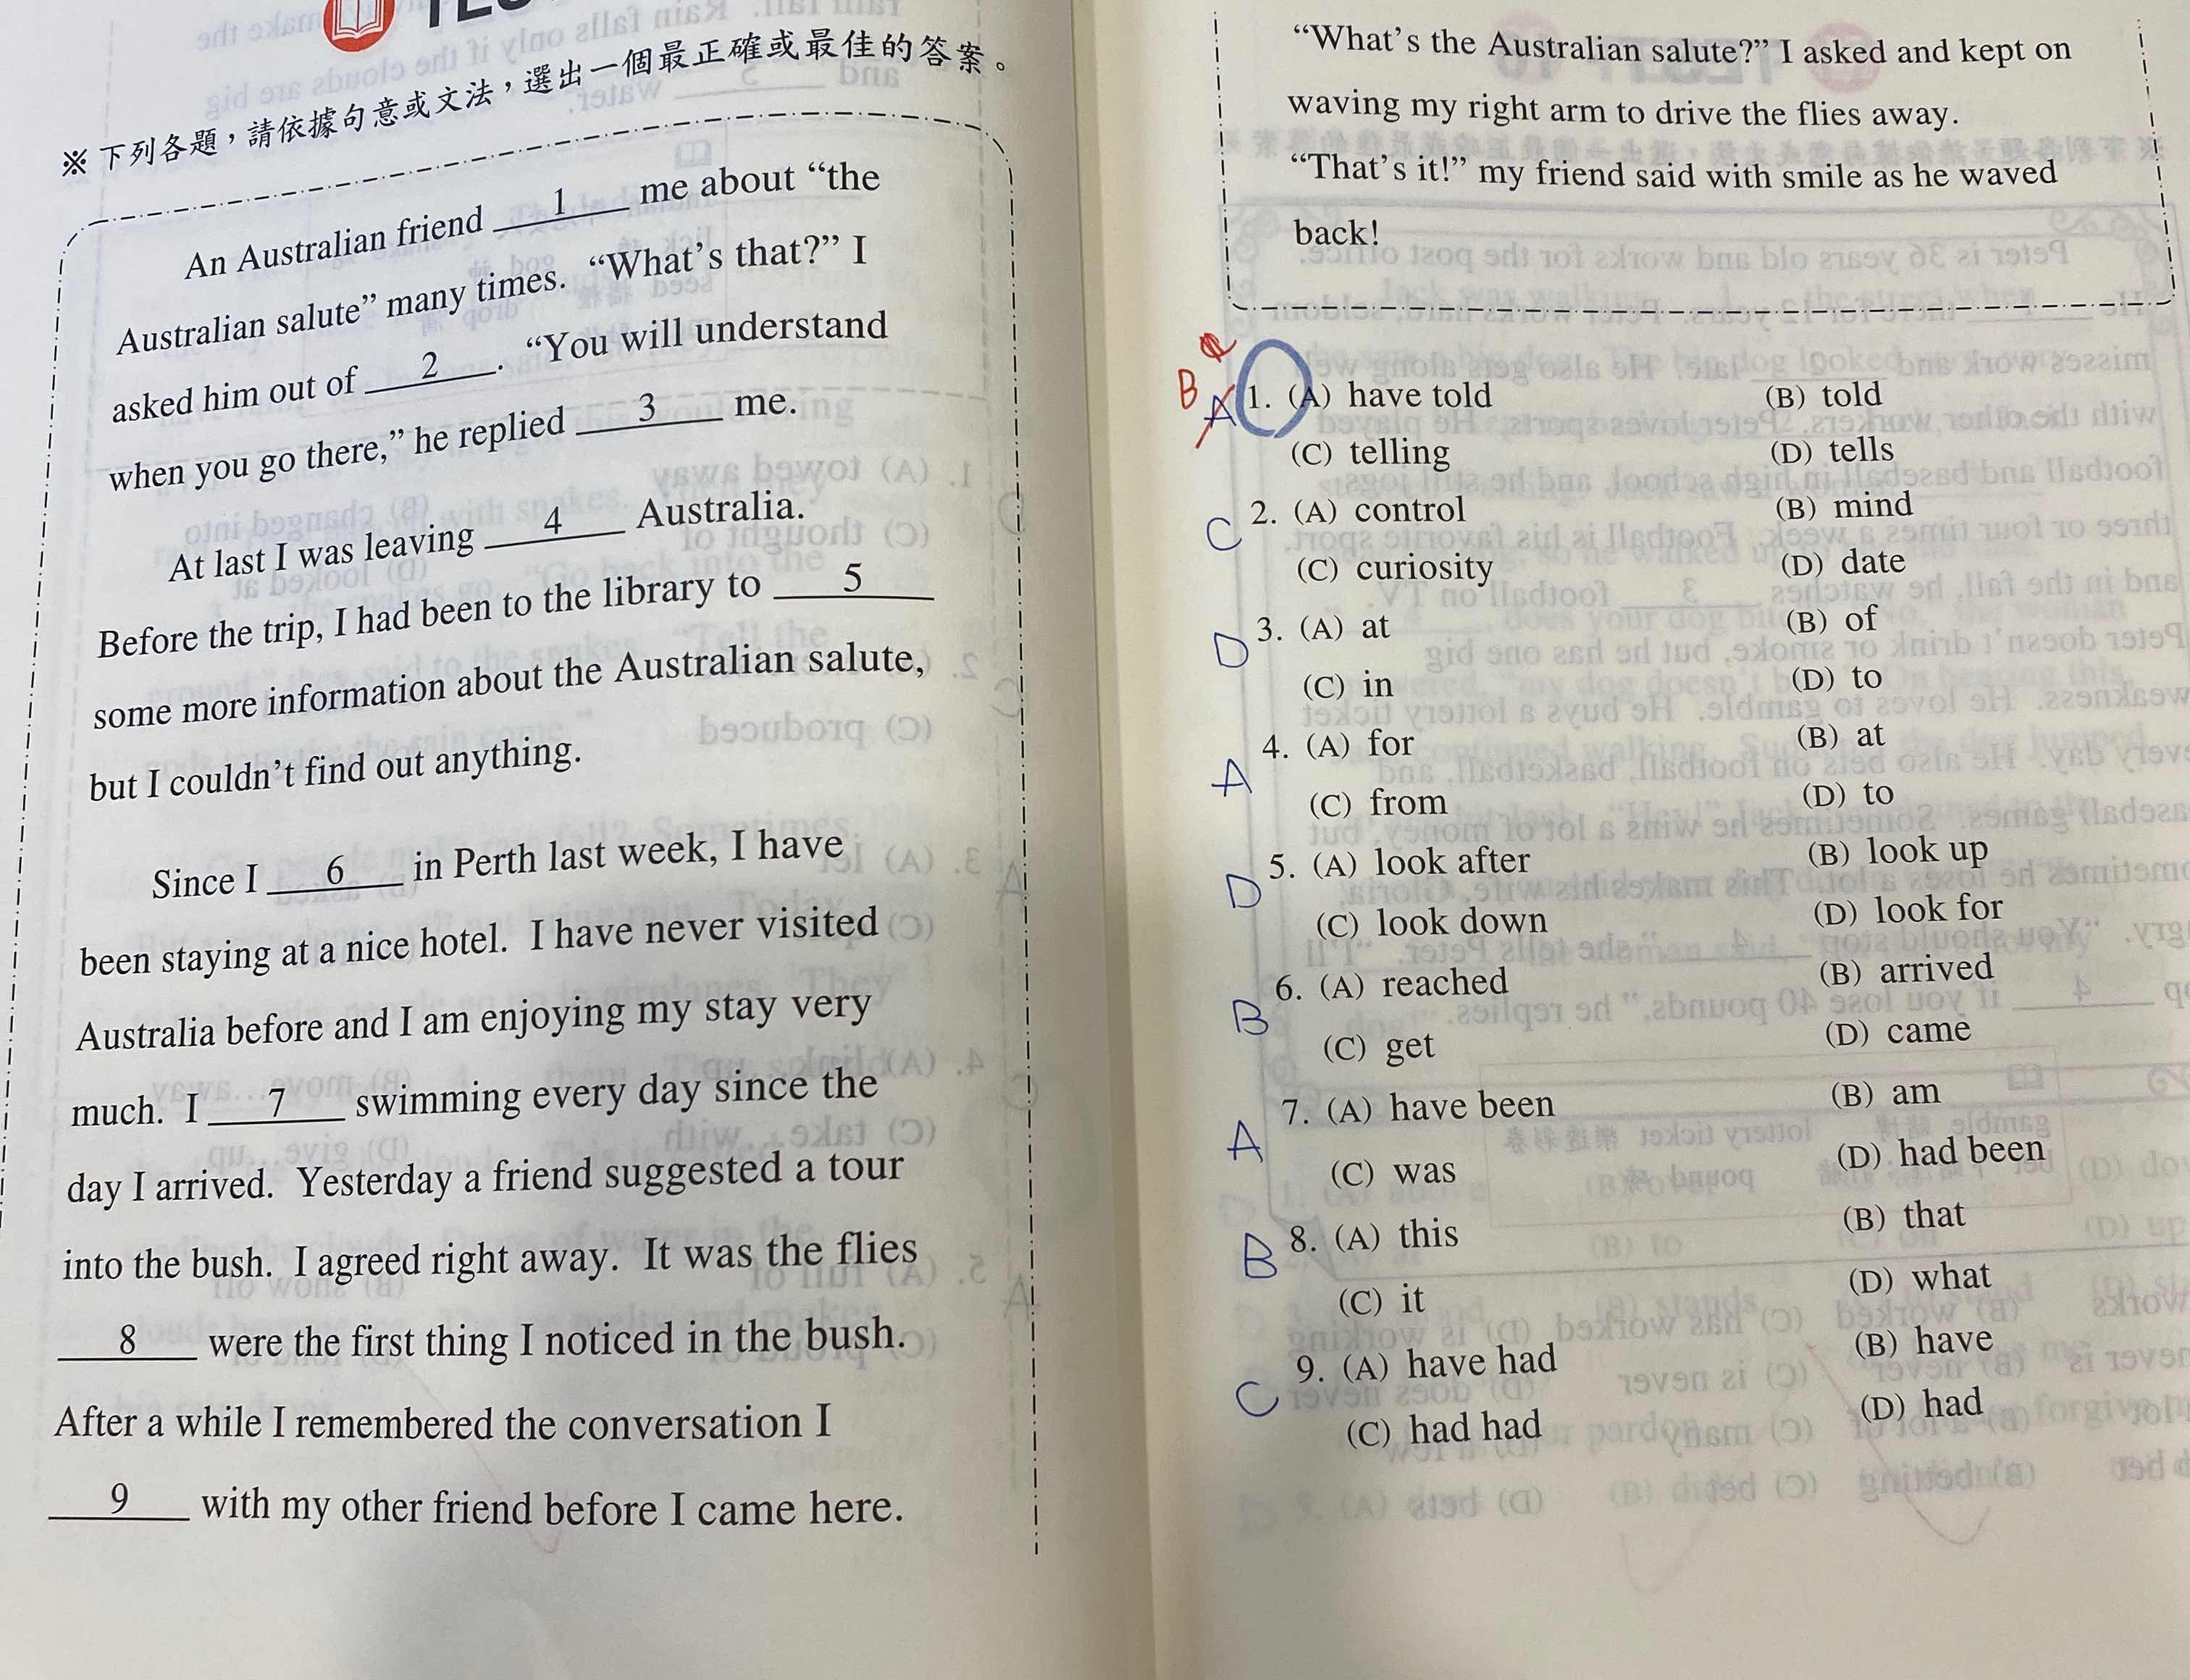 ※下列各題，請依據句意或文法，選出一個最正確或最佳的答案。
An Australian friend 1 me about “the
Australian salute” many times. “What’s that?” I
asked him out of 2. “You will understand
when you go there,” he replied 3 me.
At last I was leaving 4 Australia.
Before the trip, I had been to the library to 5
some more information about the Australian salute,
but I couldn’t find out anything.
Since I 6 in Perth last week, I have
been staying at a nice hotel. I have never visited
Australia before and I am enjoying my stay very
much. I 7 swimming every day since the
day I arrived. Yesterday a friend suggested a tour
into the bush. I agreed right away. It was the flies
8 were the first thing I noticed in the bush.
After a while I remembered the conversation I
9 with my other friend before I came here.
“What’s the Australian salute?” I asked and kept on
waving my right arm to drive the flies away.
“That’s it!” my friend said with smile as he waved
back!
B A 1. (A) have told (B) told
(C) telling (D) tells
C 2. (A) control (B) mind
(C) curiosity (D) date
D 3. (A) at (B) of
(C) in (D) to
A 4. (A) for (B) at
(C) from (D) to
D 5. (A) look after (B) look up
(C) look down (D) look for
B 6. (A) reached (B) arrived
(C) get (D) came
A 7. (A) have been (B) am
(C) was (D) had been
B 8. (A) this (B) that
(C) it (D) what
C 9. (A) have had (B) have
(C) had had (D) had